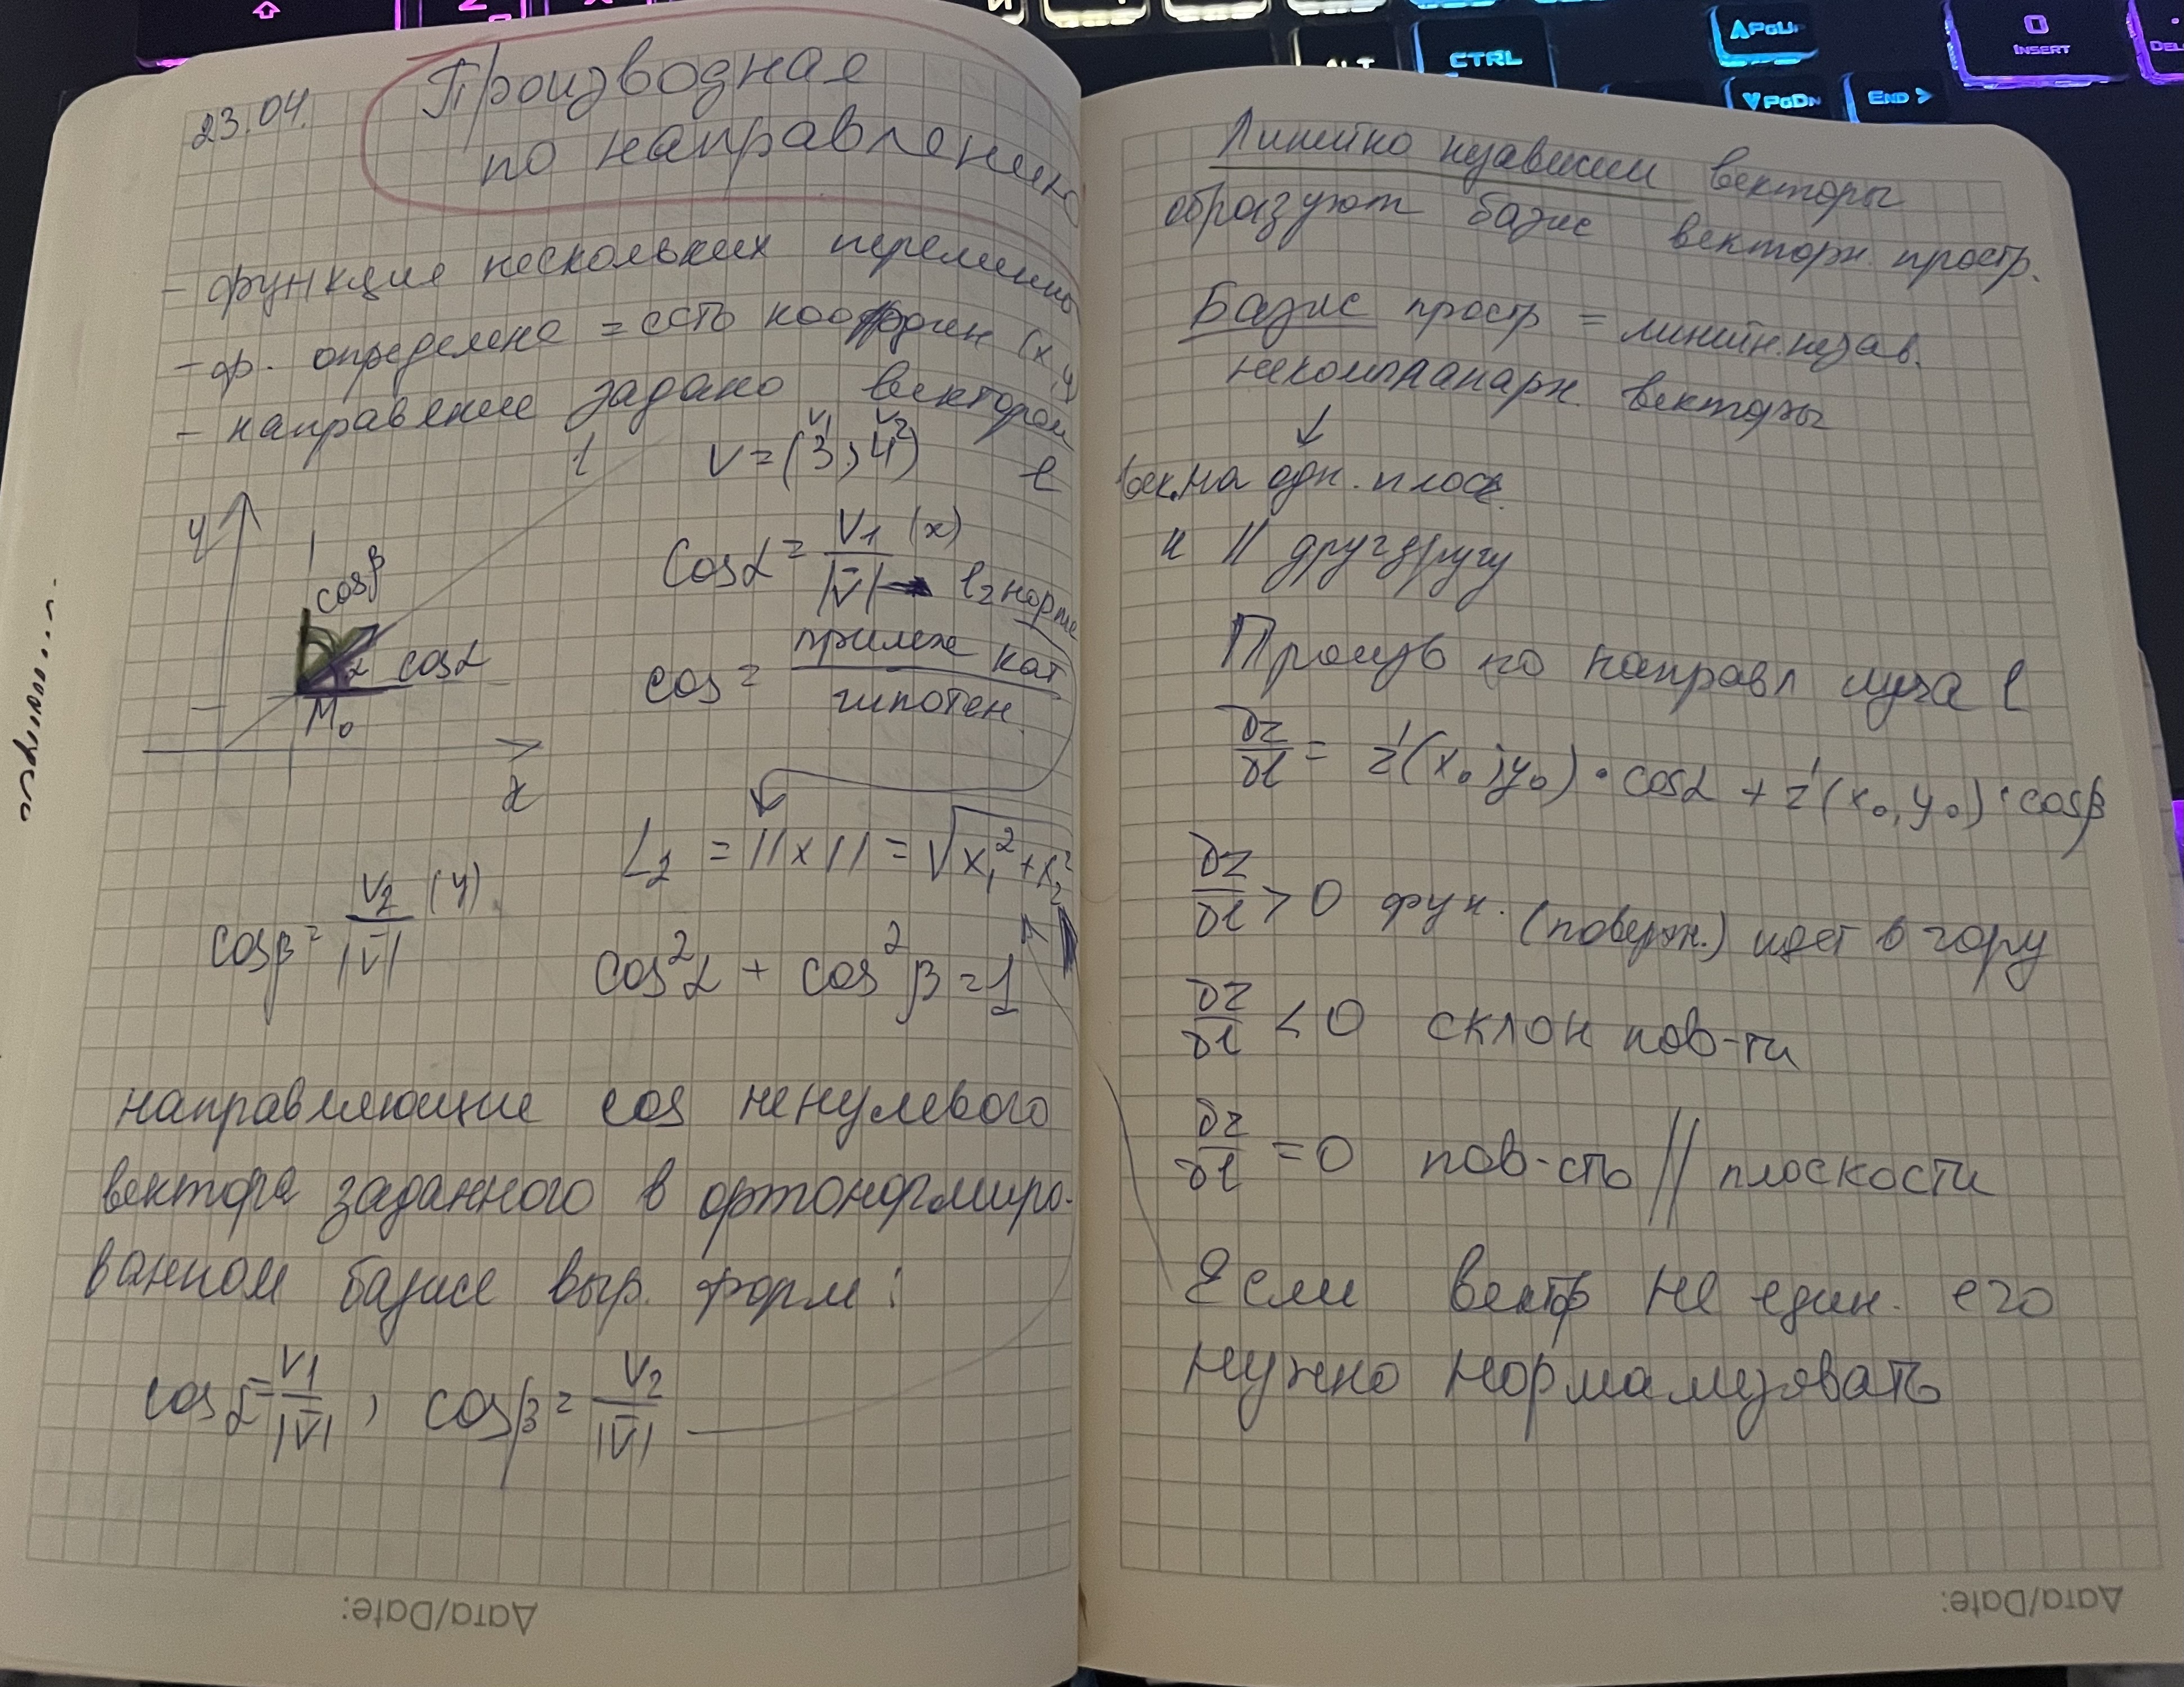 23.04.
Производная
по направлению
- функция нескольких переменно
- ф. определена = есть координ (x, y)
- направление задано вектором
l
v1 v2
V = (3; 4)
l
y
cosβ
α cosα
M₀
x
cosα = V1 (x) / |V̄| → l₂ норма
cos = прилеж кат / гипотен.
L₂ = ||x|| = √x₁² + x₂²
cosβ = V₂ (y) / |V̄|
cos²α + cos²β = 1
направляющие cos ненулевого
вектора заданного в ортонормиро-
ванном базисе выр. форм :
cosα = V1 / |V̄| , cosβ = V2 / |V̄|
Дата/Date:
Линейно независим векторы
образуют базис векторн. простр.
Базис простр = линейн. незав.
некомпланарн. векторы
↓
век. на одн. плоск.
и // друг другу
Произв по направл луча l
∂z/∂l = z'(x₀; y₀) · cosα + z'(x₀, y₀) · cosβ
∂z/∂l > 0 фун. (поверхн.) идет в гору
∂z/∂l < 0 склон пов-ти
∂z/∂l = 0 пов-сть // плоскости
Если вектр не един. его
нужно нормализовать
Дата/Date:
AПgUp
CTRL
0
INSERT
VPgDn
END >